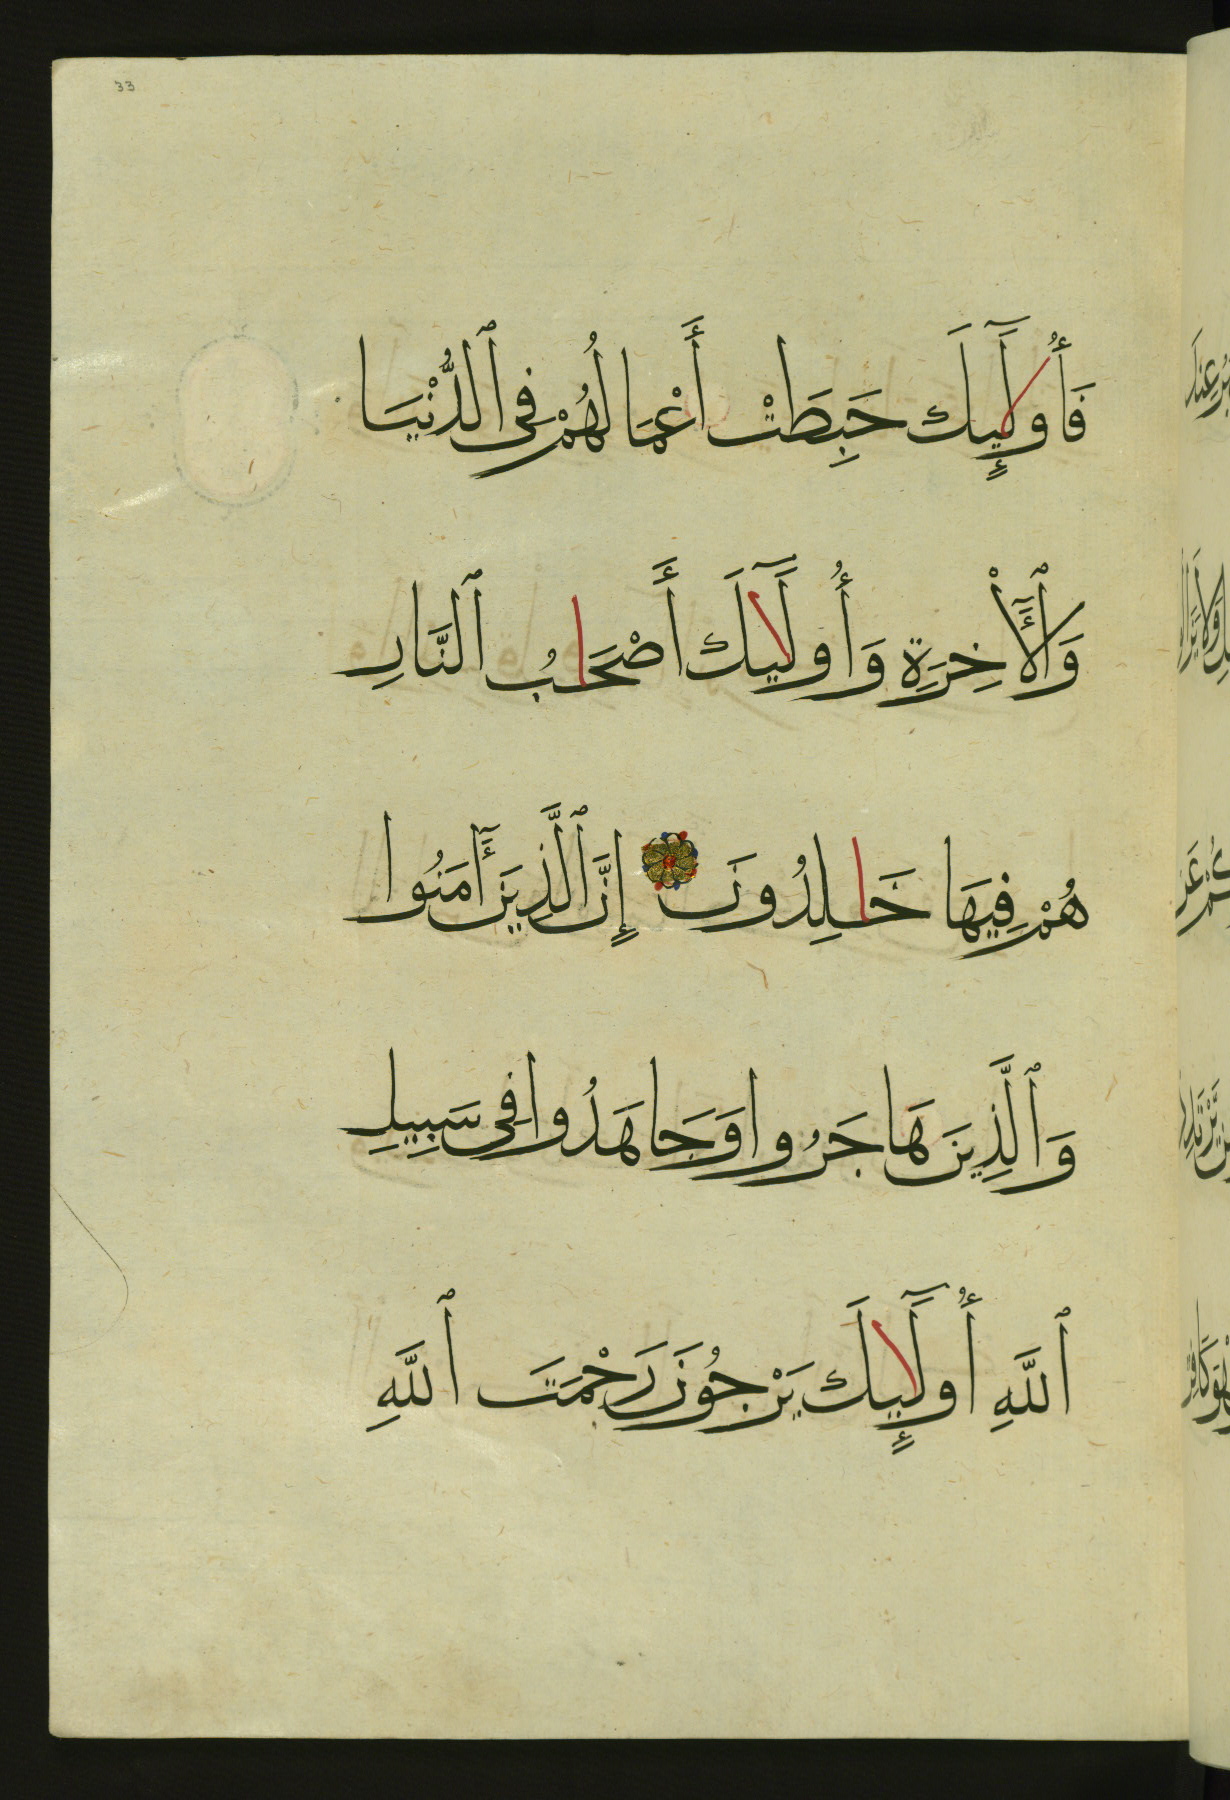 33
فَأُولَٰٓئِكَ حَبِطَتْ أَعْمَالُهُمْ فِى ٱلدُّنْيَا
وَٱلْأَٓخِرَةِ وَأُولَٰٓئِكَ أَصْحَابُ ٱلنَّارِ
هُمْ فِيهَا خَالِدُونَ إِنَّ ٱلَّذِينَ أَٓمَنُوا
وَٱلَّذِينَ هَاجَرُوا وَجَاهَدُوا فِى سَبِيلِ
ٱللَّهِ أُولَٰٓئِكَ يَرْجُونَ رَحْمَتَ ٱللَّهِ